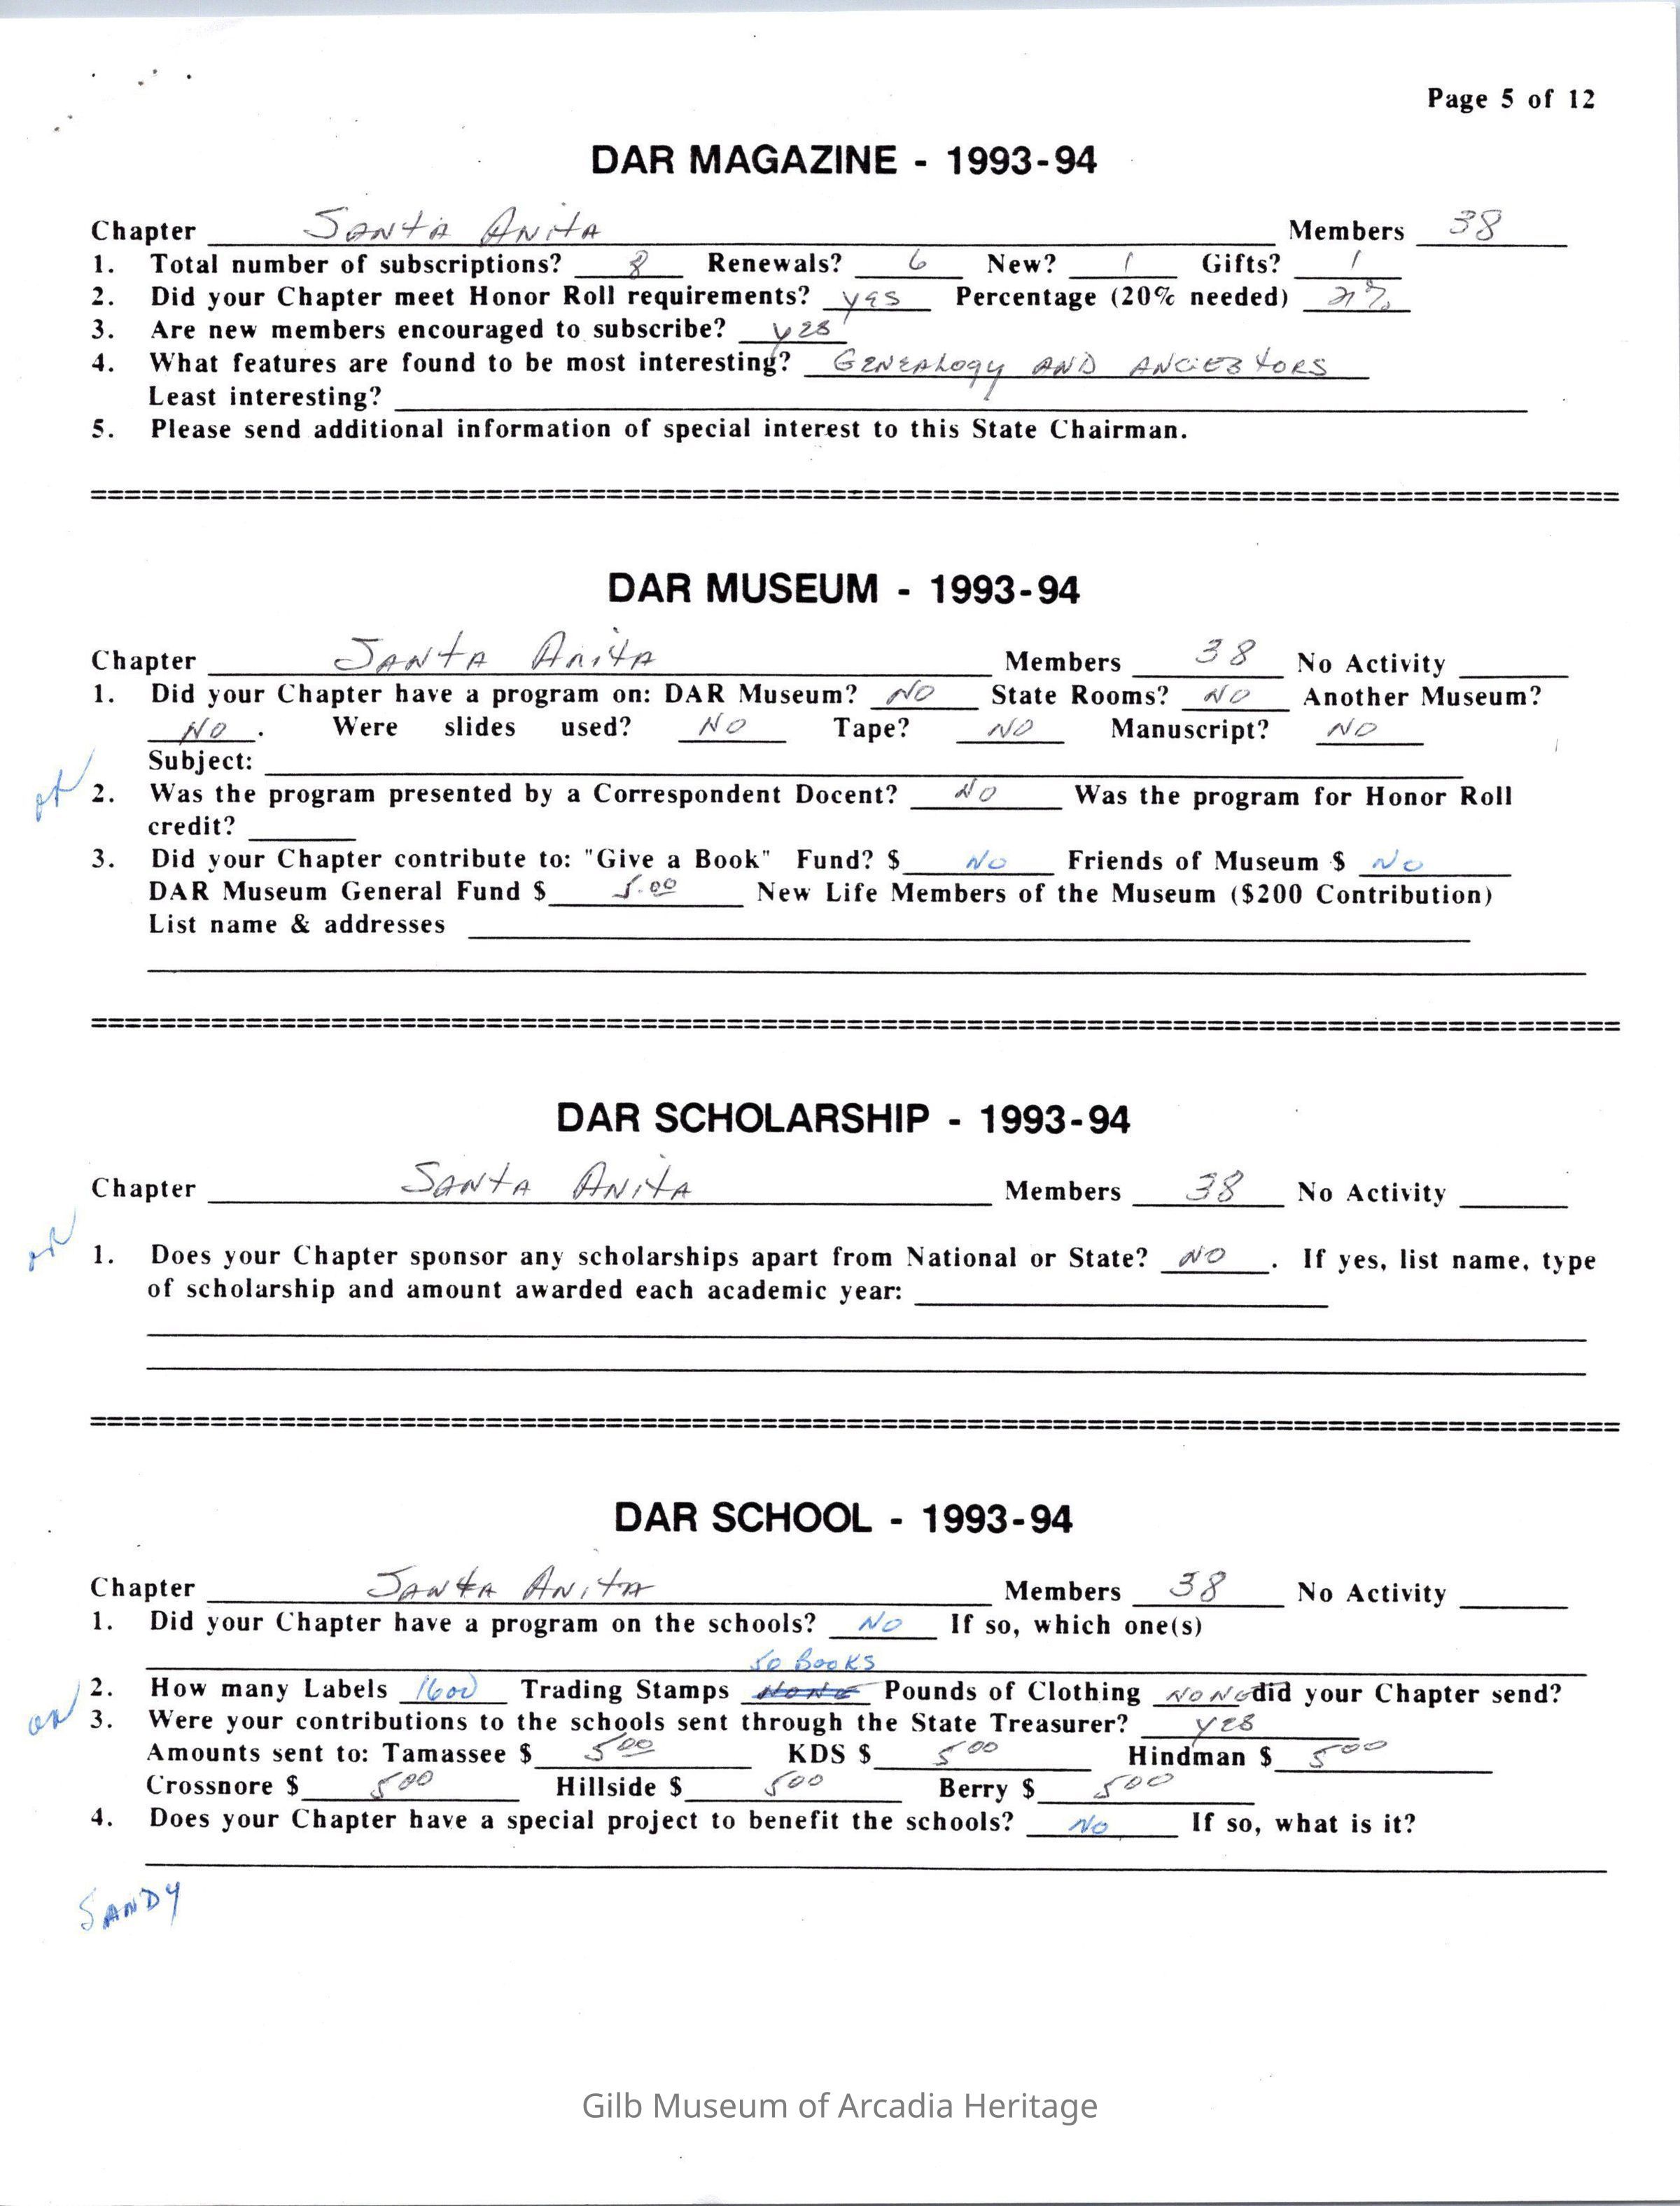 Page 5 of 12
DAR MAGAZINE - 1993-94
Chapter Santa Anita Members 38
1. Total number of subscriptions? 8 Renewals? 6 New? 1 Gifts? 1
2. Did your Chapter meet Honor Roll requirements? yes Percentage (20% needed) 21%
3. Are new members encouraged to subscribe? yes
4. What features are found to be most interesting? GENEALOGY AND ANCIESTORS
Least interesting?
5. Please send additional information of special interest to this State Chairman.
DAR MUSEUM - 1993-94
Chapter Santa Anita Members 38 No Activity
1. Did your Chapter have a program on: DAR Museum? NO State Rooms? NO Another Museum?
NO . Were slides used? NO Tape? NO Manuscript? NO
Subject:
2. Was the program presented by a Correspondent Docent? NO Was the program for Honor Roll
credit?
3. Did your Chapter contribute to: "Give a Book" Fund? $ No Friends of Museum $ No
DAR Museum General Fund $ 5.00 New Life Members of the Museum ($200 Contribution)
List name & addresses
DAR SCHOLARSHIP - 1993-94
Chapter Santa Anita Members 38 No Activity
1. Does your Chapter sponsor any scholarships apart from National or State? NO . If yes, list name, type
of scholarship and amount awarded each academic year:
DAR SCHOOL - 1993-94
Chapter Santa Anita Members 38 No Activity
1. Did your Chapter have a program on the schools? No If so, which one(s)
50 BOOKS
2. How many Labels 1600 Trading Stamps NONE Pounds of Clothing NONE did your Chapter send?
3. Were your contributions to the schools sent through the State Treasurer? yes
Amounts sent to: Tamassee $ 5 00 KDS $ 5 00 Hindman $ 5 00
Crossnore $ 5 00 Hillside $ 5 00 Berry $ 5 00
4. Does your Chapter have a special project to benefit the schools? No If so, what is it?
SANDY
Gilb Museum of Arcadia Heritage